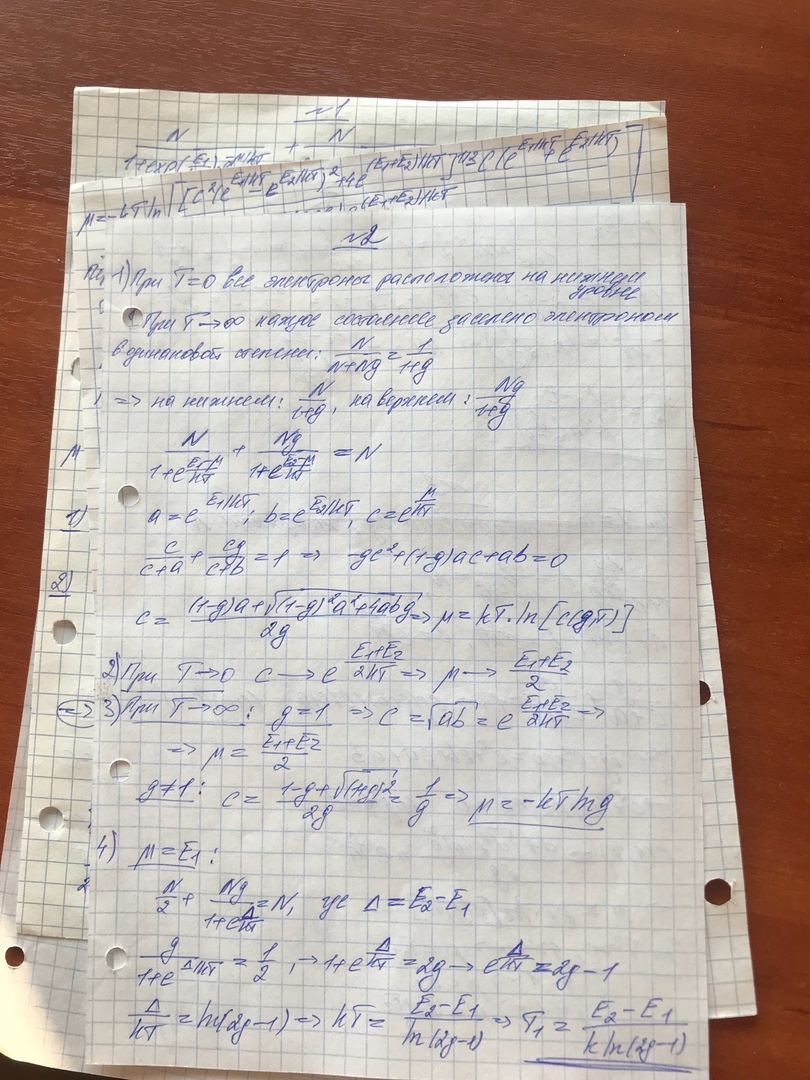 ~1
N / 1+exp(E1)-μ/kT + N
μ=-kT ln [[C²(e^{E1/kT}-e^{E2/kT})²+4e^{(E1+E2)/kT}]^{1/2} C(e^{E1/kT}+e^{E2/kT})
(E1+E2)/kT
~2
1) При T=0 все электроны расположены на нижнем
уровне
При T→∞ каждое состояние заселено электроном
в одинаковой степени: N/(N+Ng) = 1/(1+g)
=> на нижнем: N/(1+g), на верхнем: Ng/(1+g)
μ
N/(1+e^{(E1-μ)/kT}) + Ng/(1+e^{(E2-μ)/kT}) = N
1)
a=e^{E1/kT}; b=e^{E2/kT}, c=e^{μ/kT}
c/(c+a) + cg/(c+b) = 1 => -gc²+(1-g)ac+ab=0
2)
c = ((1-g)a+√((1-g)²a²+4abg))/2g => μ=kT·ln[c(g,T)]
2) При T→0 c → e^{(E1+E2)/2kT} => μ → (E1+E2)/2
=> 3) При T→∞: g=1 => c=√ab = e^{(E1+E2)/2kT} =>
=> μ = (E1+E2)/2
g≠1: c = (1-g+√(1+g)²)/2g = 1/g => μ=-kT ln g
4) μ=E1:
N/2 + Ng/(1+e^{Δ/kT}) = N, где Δ=E2-E1
g/(1+e^{Δ/kT}) = 1/2, → 1+e^{Δ/kT} = 2g → e^{Δ/kT} = 2g-1
Δ/kT = ln(2g-1) => kT = (E2-E1)/ln(2g-1) => T1 = (E2-E1)/(k ln(2g-1))